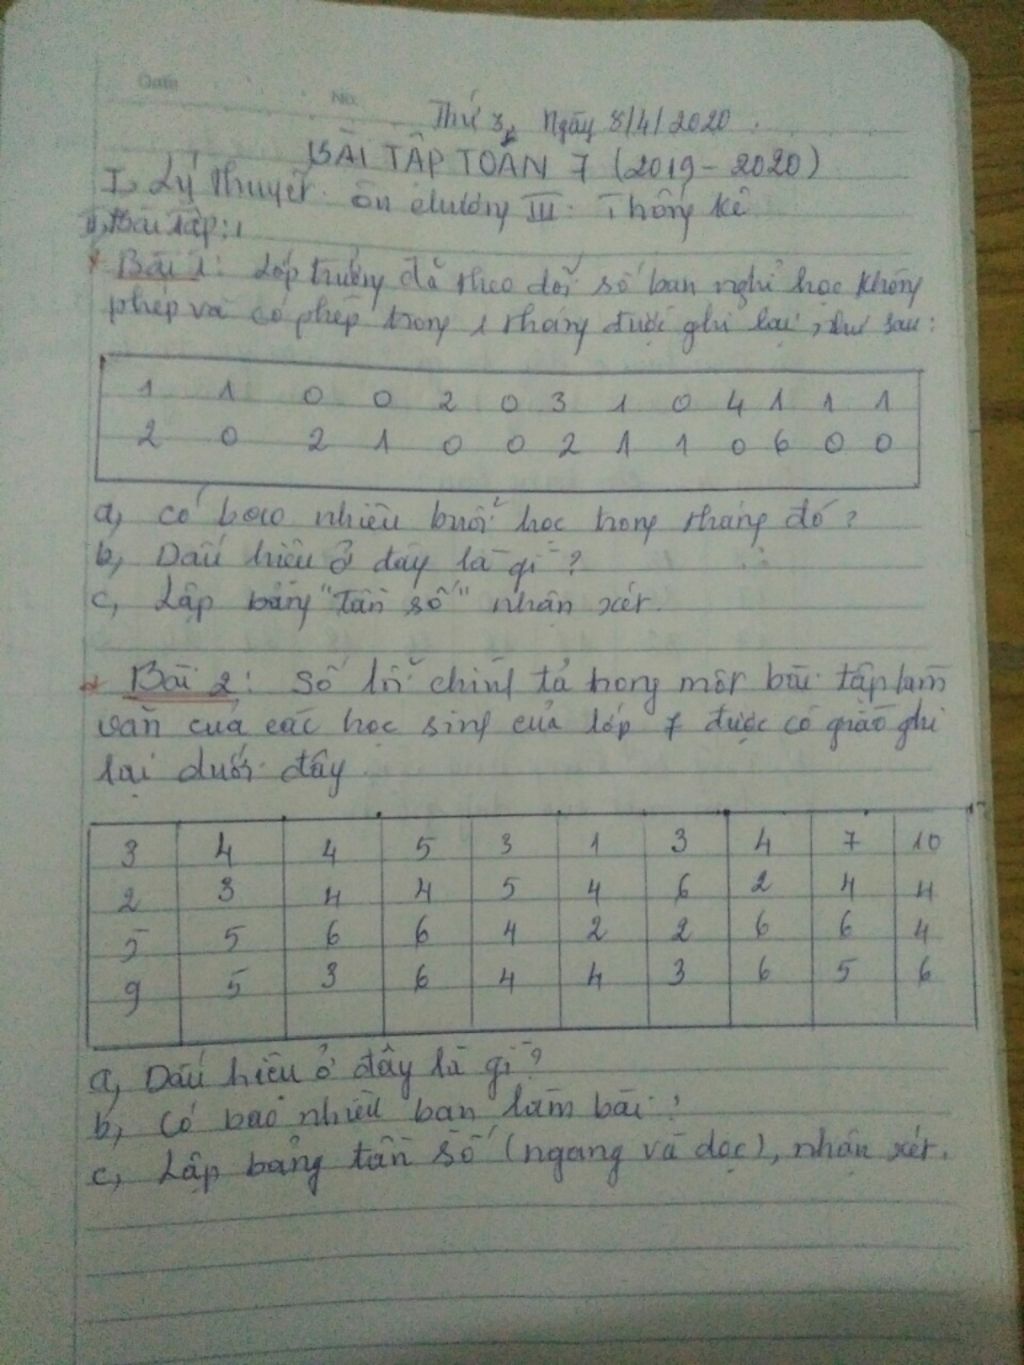 Date
No.
Thứ 3, Ngày 8/4/2020.
BÀI TẬP TOÁN 7 (2019-2020)
I, Lý thuyết. ôn chương III. Thống kê
II, Bài tập:
* Bài 1: Lớp trưởng đã theo dõi số bạn nghỉ học không
phép và có phép trong 1 tháng được ghi lại như sau:
1 1 0 0 2 0 3 1 0 4 1 1 1
2 0 2 1 0 0 2 1 1 0 6 0 0
a, có bao nhiêu buổi học trong tháng đó?
b, Dấu hiệu ở đây là gì?
c, Lập bảng "tần số" nhận xét.
* Bài 2: Số lỗi chính tả trong một bài tập làm
văn của các học sinh của lớp 7 được cô giáo ghi
lại dưới đây
3 4 4 5 3 1 3 4 7 10
2 3 4 4 5 4 6 2 4 4
5 5 6 6 4 2 2 6 6 4
9 5 3 6 4 4 3 6 5 6
a, Dấu hiệu ở đây là gì?
b, Có bao nhiêu bạn làm bài?
c, Lập bảng tần số (ngang và dọc), nhận xét.